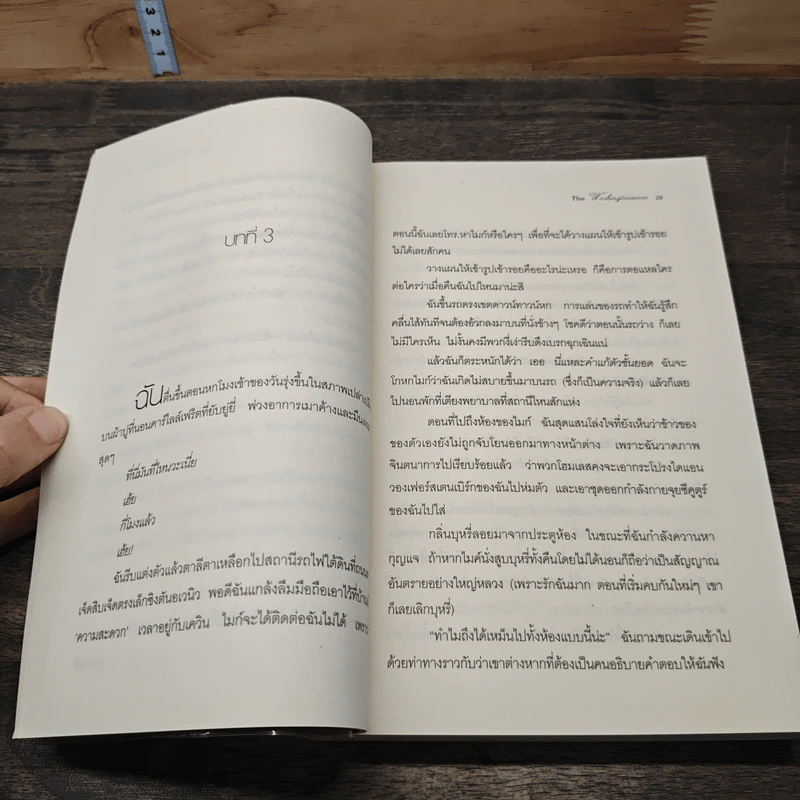 3
2
1
บทที่ 3
ฉันตื่นขึ้นตอนหกโมงเช้าของวันรุ่งขึ้นในสภาพเปล่า
บนผ้าปูที่นอนคาร์ไลล์เฟร็ตที่ยับยู่ยี่ พ่วงอาการเมาค้างและมึน
สุดๆ
ที่นี่มันที่ไหนวะเนี่ย
เฮ้ย
กี่โมงแล้ว
เฮ้ย!
ฉันรีบแต่งตัวแล้วตาลีตาเหลือกไปสถานีรถไฟใต้ดินที่ถนน
เจ็ดสิบเจ็ดตรงเล็กซิงตันอเวนิว พอดีฉันแกล้งลืมมือถือเอาไว้ที่บ้าน
'ความสะดวก' เวลาอยู่กับเควิน ไมก์จะได้ติดต่อฉันไม่ได้ เพราะ
The 29
ตอนนี้ฉันเลยโทร.หาไมก์หรือใครๆ เพื่อที่จะได้วางแผนให้เข้ารูปเข้ารอย
ไม่ได้เลยสักคน
วางแผนให้เข้ารูปเข้ารอยคืออะไรน่ะเหรอ ก็คือการตอแหลใคร
ต่อใครว่าเมื่อคืนฉันไปไหนมาน่ะสิ
ฉันขึ้นรถตรงเขตดาวน์ทาวน์หก การแล่นของรถทำให้ฉันรู้สึก
คลื่นไส้ทันทีจนต้องอ้วกลงมาบนที่นั่งข้างๆ โชคดีว่าตอนนั้นรถว่าง ก็เลย
ไม่มีใครเห็น ไม่งั้นคงมีพวกงี่เง่ารีบดึงเบรกฉุกเฉินแน่
แล้วฉันก็ตระหนักได้ว่า เออ นี่แหละคำแก้ตัวชั้นยอด ฉันจะ
โกหกไมก์ว่าฉันเกิดไม่สบายขึ้นมาบนรถ (ซึ่งก็เป็นความจริง) แล้วก็เลย
ไปนอนพักที่เตียงพยาบาลที่สถานีไหนสักแห่ง
ตอนที่ไปถึงห้องของไมก์ ฉันสุดแสนโล่งใจที่ยังเห็นว่าข้าวของ
ของตัวเองยังไม่ถูกจับโยนออกมาทางหน้าต่าง เพราะฉันวาดภาพ
จินตนาการไปเรียบร้อยแล้ว ว่าพวกโฮมเลสคงจะเอากระโปรงไดแอน
วองเฟอร์สเตนเบิร์กของฉันไปห่มตัว และเอาชุดออกกำลังกายจุยซีคูตูร์
ของฉันไปใส่
กลิ่นบุหรี่ลอยมาจากประตูห้อง ในขณะที่ฉันกำลังควานหา
กุญแจ ถ้าหากไมค์นั่งสูบบุหรี่ทั้งคืนโดยไม่ได้นอนก็ถือว่าเป็นสัญญาณ
อันตรายอย่างใหญ่หลวง (เพราะรักฉันมาก ตอนที่เริ่มคบกันใหม่ๆ เขา
ก็เลยเลิกบุหรี่)
"ทำไมถึงได้เหม็นไปทั้งห้องแบบนี้น่ะ" ฉันถามขณะเดินเข้าไป
ด้วยท่าทางราวกับว่าเขาต่างหากที่ต้องเป็นคนอธิบายคำตอบให้ฉันฟัง